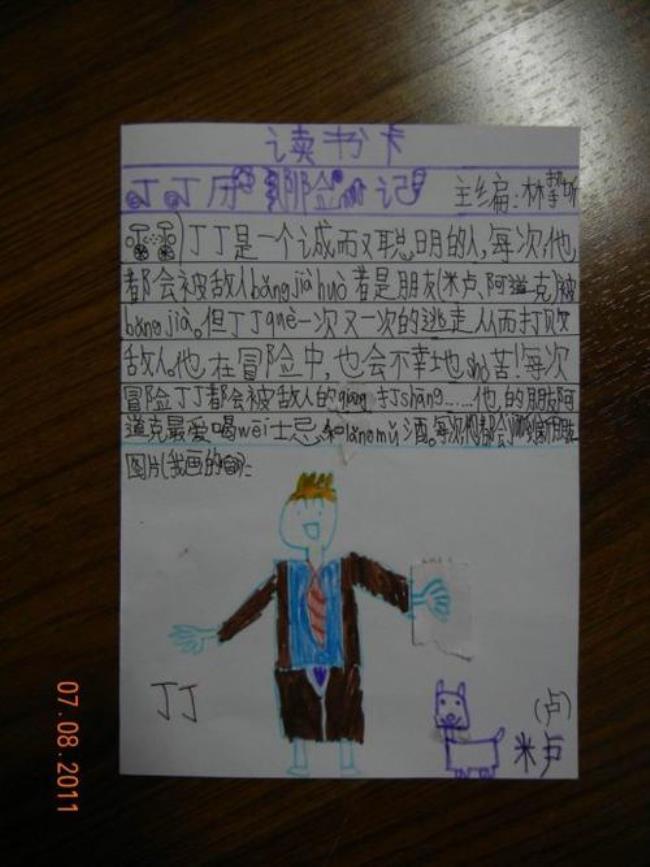 读书卡
丁丁历险记 主编:林
丁丁是一个诚而又聪明的人,每次,他
都会被敌人bǎng jià huò 者是朋友(米卢、阿道克)被
bǎng jià。但丁丁què一次又一次的逃走从而打败
敌人。他,在冒险中,也会不幸地 苦!每次
冒险丁丁都会被敌人的qiāng 打shāng……他,的朋友阿
道克最爱喝wēi士忌和lǎng mǔ酒。每次他都会
图片(我画的 ):
丁丁
(卢)
米卢
07.08.2011